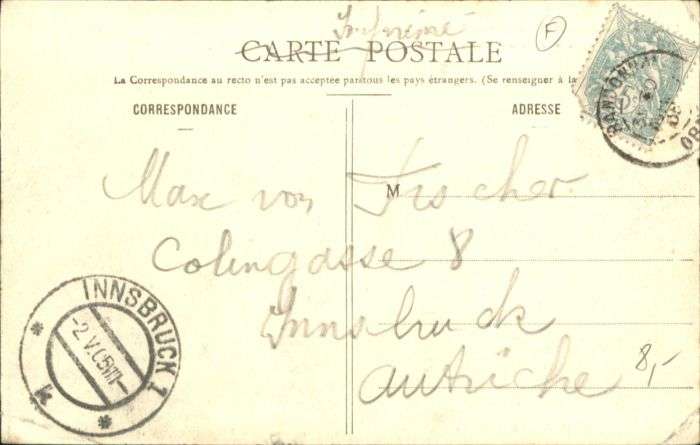 Imprimé
F
CARTE POSTALE
La Correspondance au recto n'est pas acceptée par tous les pays étrangers. (Se renseigner à la
CORRESPONDANCE
ADRESSE
M
Max von Fischer
Colingasse 8
Innsbruck
Autriche
8,-
INNSBRUCK 1
-2.V.05
k